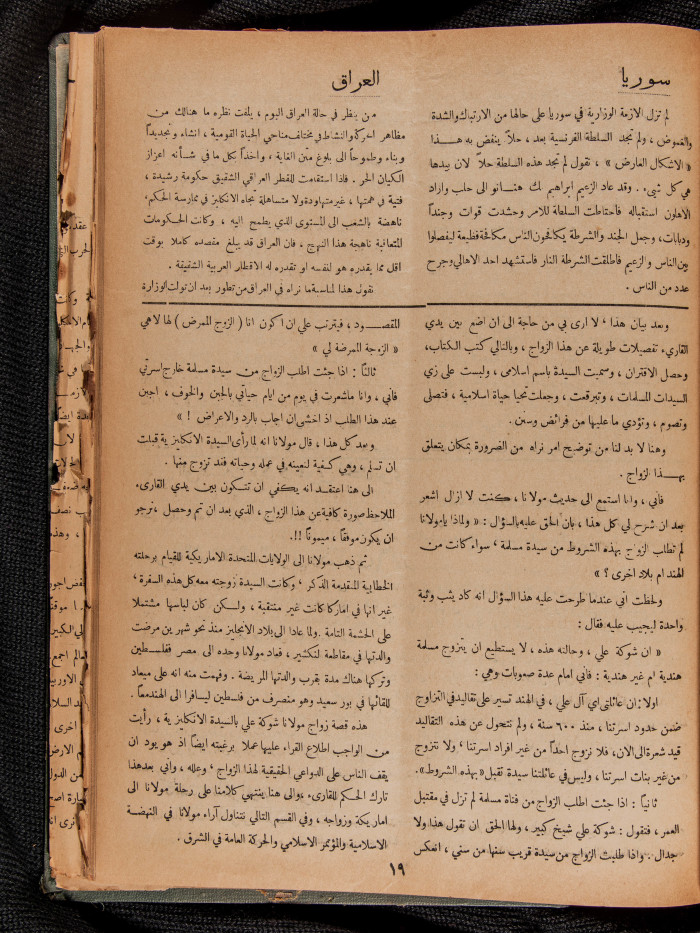 سوريا
لم تزل الازمة الوزارية في سوريا على حالها من الارتباك والشدة
والغموض ، ولم تجد السلطة الفرنسية بعد ، حلاً ينفض به هــذا
« الاشكال العارض » ، نقول لم تجد هذه السلطة حلاً لان بيدها
هي كل شيء . وقد عاد الزعيم ابراهيم بك هنــانو الى حلب واراد
الاهلون استقباله فاحتاطت السلطة للامر وحشدت قوات وجنداً
ودبابات ، وجعل الجند والشرطة يكافحون الناس مكافحة فظيعة ليفصلوا
بين الناس والزعيم فاطلقت الشرطة النار فاستشهد احد الاهالي وجرح
عدد من الناس .
العراق
من ينظر في حالة العراق اليوم ، يلفت نظره ما هنالك من
مظاهر الحركة والنشاط في مختلف مناحي الحياة القومية ، انشاء وتجديداً
وبناء وطموحاً الى بلوغ متن الغاية ، واخذاً بكل ما في شــأنه اعزاز
الكيان الحر . فاذا استقامت للقطر العراقي الشقيق حكومة رشيدة ،
فتية في همتها ، غير متهاودة ولا متساهلة تجاه الانكليز في ممارسة الحكم،
ناهضة بالشعب الى المستوى الذي يطمح اليه ، وكانت الحـكومات
المتعاقبة ناهجة هذا النهج ، فان العراق قد يبلغ مقصده كاملا بوقت
اقل مما يقدره هو لنفسه او تقدره له الاقطار العربية الشقيقة .
نقول هذا لمناسبة ما نراه في العراق من تطور بعد ان تولت الوزارة
وبعد بيان هذا ، لا ارى بي من حاجة الى ان اضع بين يدي
القاريء تفصيلات طويلة عن هذا الزواج ، وبالتالي كتب الكتاب،
وحصل الاقتران ، وسميت السيدة باسم اسلامي ، ولبست على زي
السيدات المسلمات ، وتبرقعت ، وجعلت تحيا حياة اسلامية ، فتصلي
وتصوم ، وتؤدي ما عليها من فرائض وسنن .
وهنا لا بد لنا من توضيح امر نراه من الضرورة بمكان يتعلق
بهــذا الزواج .
فاني ، وانا استمع الى حديث مولانا ، كنت لا ازال اشعر
بعد ان شرح لي كل هذا ، بان الحق عليه بالسؤال : « ولماذا يا مولانا
لم تطلب الزواج بهذه الشروط من سيدة مسلمة ، سواء كانت من
الهند ام بلاد اخرى ؟ »
ولحظت اني عندما طرحت عليه هذا السؤال انه كاد يثب وثبة
واحدة ليجيب عليه فقال :
« ان شوكة علي ، وحالته هذه ، لا يستطيع ان يتزوج مسلمة
هندية ام غير هندية : فاني امام عدة صعوبات وهي :
اولا : ان عائلتي اي آل علي ، في الهند تسير على تقاليد في التزاوج
ضمن حدود اسرتنا ، منذ ٦٠٠ سنة ، ولم نتحول عن هذه التقاليد
قيد شعرة الى الان، فلا نزوج احداً من غير افراد اسرتنا ، ولا نتزوج
من غير بنات اسرتنا ، وليس في عائلتنا سيدة تقبل « بهذه الشروط ».
ثانياً : اذا جئت اطلب الزواج من فتاة مسلمة لم تزل في مقتبل
العمر ، فتقول : شوكة علي شيخ كبير ، ولها الحق ان تقول هذا ولا
جدال . واذا طلبت الزواج من سيدة قريب سنها من سني ، انعكس
المقصــود ، فيترتب علي ان اكون انا ( الزوج الممرض ) لها لا هي
« الزوجة الممرضة لي »
ثالثاً : اذا جئت اطلب الزواج من سيدة مسلمة خارج اسرتي
فاني ، وانا ما شعرت في يوم من ايام حياتي بالجبن والخوف ، اجبن
عند هذا الطلب اذ اخشى ان اجاب بالرد والاعراض ! »
وبعد كل هذا ، قال مولانا انه لما رأى السيدة الانكليزية قبلت
ان تسلم ، وهي كفية لتعينه في عمله وحياته فقد تزوج منها .
الى هنا اعتقــد انه يكفي ان تتــكون بين يدي القاريء
الملاحظ صورة كافية عن هذا الزواج ، الذي بعد ان تم وحصل ، نرجو
ان يكون موفقاً ، ميموناً !!.
ثم ذهب مولانا الى الولايات المتحدة الامريكية للقيام برحلته
الخطابية المتقدمة الذكر ، وكانت السيدة زوجته معه كل هذه السفرة ،
غير انها في امركا كانت غير متنقبة ، ولـكن كان لباسها مشتملا
على الحشمة التامة . ولما عادا الى بلاد الانجليز منذ نحو شهرين مرضت
والدتها في مقاطعة لنكشير ، فعاد مولانا وحده الى مصر ففلسطين
وتركها هناك مدة بقرب والدتها المريضة . وفهمت منه انه على ميعاد
للقائها في بور سعيد وهو منصرف من فلسطين ليسافرا الى الهند معاً .
هذه قصة زواج مولانا شوكة علي بالسيدة الانكليزية ، رأيت
من الواجب اطلاع القراء عليها عملا برغبته ايضاً اذ هو يود ان
يقف الناس على الدواعي الحقيقية لهذا الزواج ، وعلله ، واني بعد هذا
تارك الحكم للقاريء ، والى هنا ينتهي كلامنا على رحلة مولانا الى
امريكة وزواجه ، وفي القسم التالي نتناول آراء مولانا في النهضة
الاسلامية والمؤتمر الاسلامي والحركة العامة في الشرق .
١٩